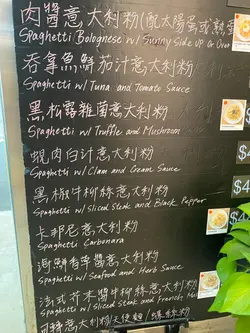 肉醬意大利粉(配太陽蛋或熟蛋
Spaghetti Bolognese w/ Sunny Side up or Over
吞拿魚鮮茄汁意大利粉
Spaghetti w/ Tuna and Tomato Sauce
黑松露雜菌意大利粉
Spaghetti w/ Truffle and Mushroom
蜆肉白汁意大利粉
Spaghetti w/ Clam and Cream Sauce
黑椒牛柳絲意大利粉
Spaghetti w/ Sliced Steak and Black Pepper
卡邦尼意大利粉
Spaghetti Carbonara
海鮮香草醬意大利粉
Spaghetti w/ Seafood and Herb Sauce
法式芥末醬牛柳絲意大利粉
Spaghetti w/ Sliced Steak and French
意大利粉/天使麵/螺絲粉
$4
$4
$